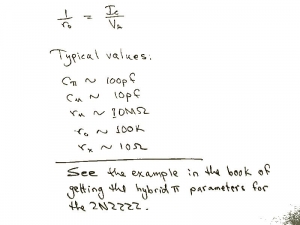 1/r₀ = I_c/V_A
Typical values:
C_π ~ 100pf
C_μ ~ 10pf
r_μ ~ 10MΩ
r₀ ~ 100K
r_x ~ 10Ω
See the example in the book of
getting the hybrid π parameters for
the 2N2222.